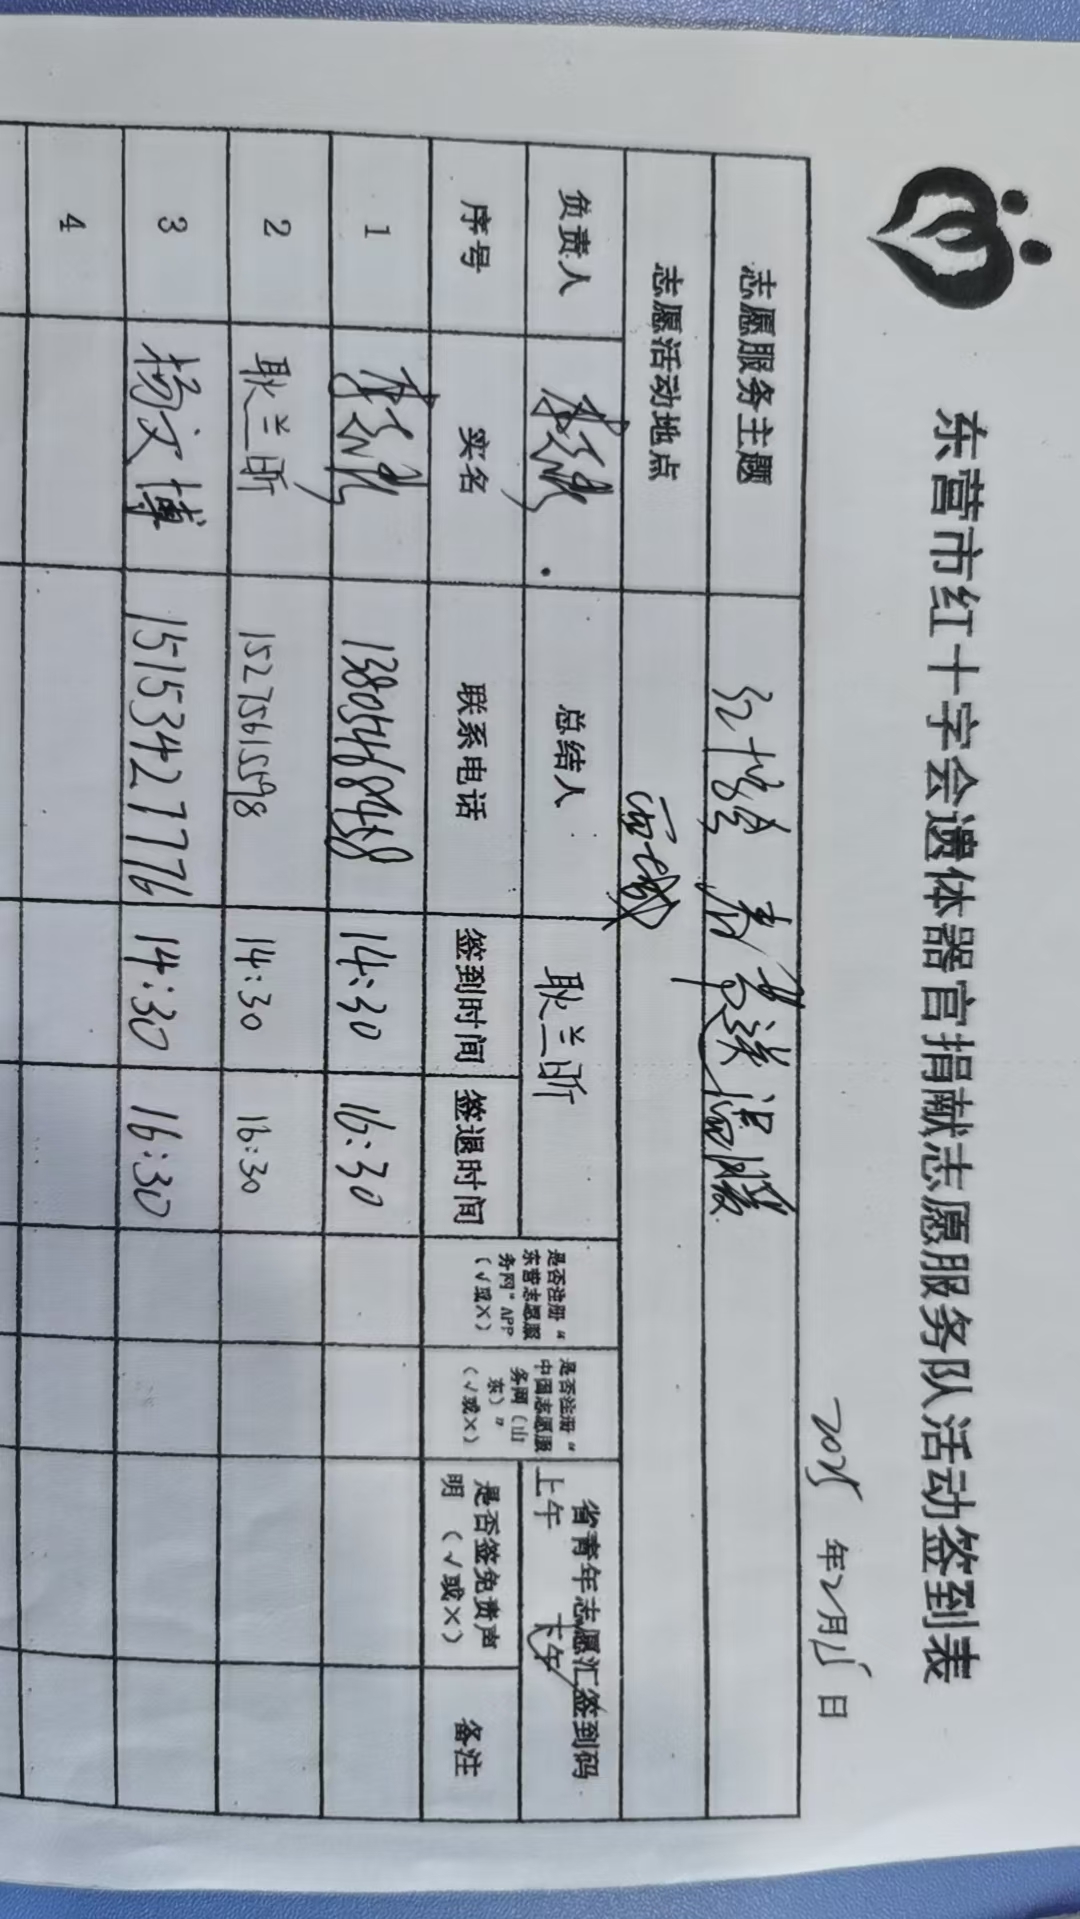 东营市红十字会遗体器官捐献志愿服务队活动签到表
2025 年 2 月 15 日
志愿服务主题 红十字会 春 送温暖
志愿活动地点 西城
负责人 总结人 耿兰昕 省青年志愿汇签到码
上午 下午
序号 实名 联系电话 签到时间 签退时间 是否注册“东营志愿服务网”APP（√或X） 是否注册“中国志愿服务网（山东）”（√或X） 是否签免责声明（√或X） 备注
1 13805468468 14:30 16:30
2 耿兰昕 15275615598 14:30 16:30
3 杨文博 15153427776 14:30 16:30
4